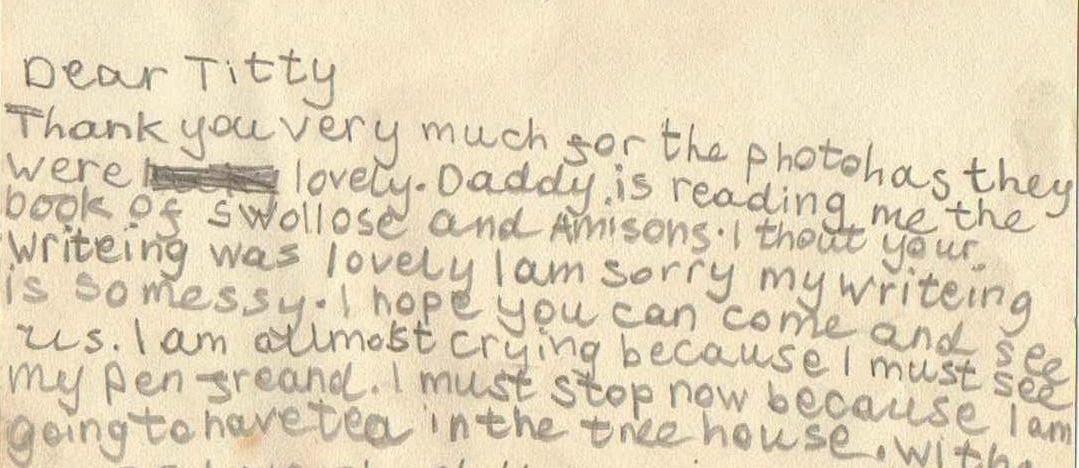 Dear Titty
Thank you very much for the photohas they
were lovely. Daddy is reading me the
book of swollose and Amisons. I thout your
writeing was lovely I am sorry my writeing
is so messy. I hope you can come and see
us. I am allmost crying because I must see
my pen freand. I must stop now because I am
going to have tea in the tree house. with